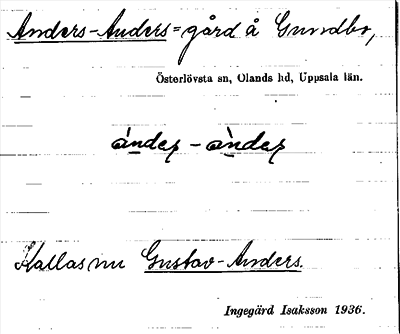 Anders-Anders=gård å Gunndbo,
Österlövsta sn, Olands hd, Uppsala län.
ándeʂ - àndeʂ
Kallas nu Gustav-Anders.
Ingegärd Isaksson 1936.